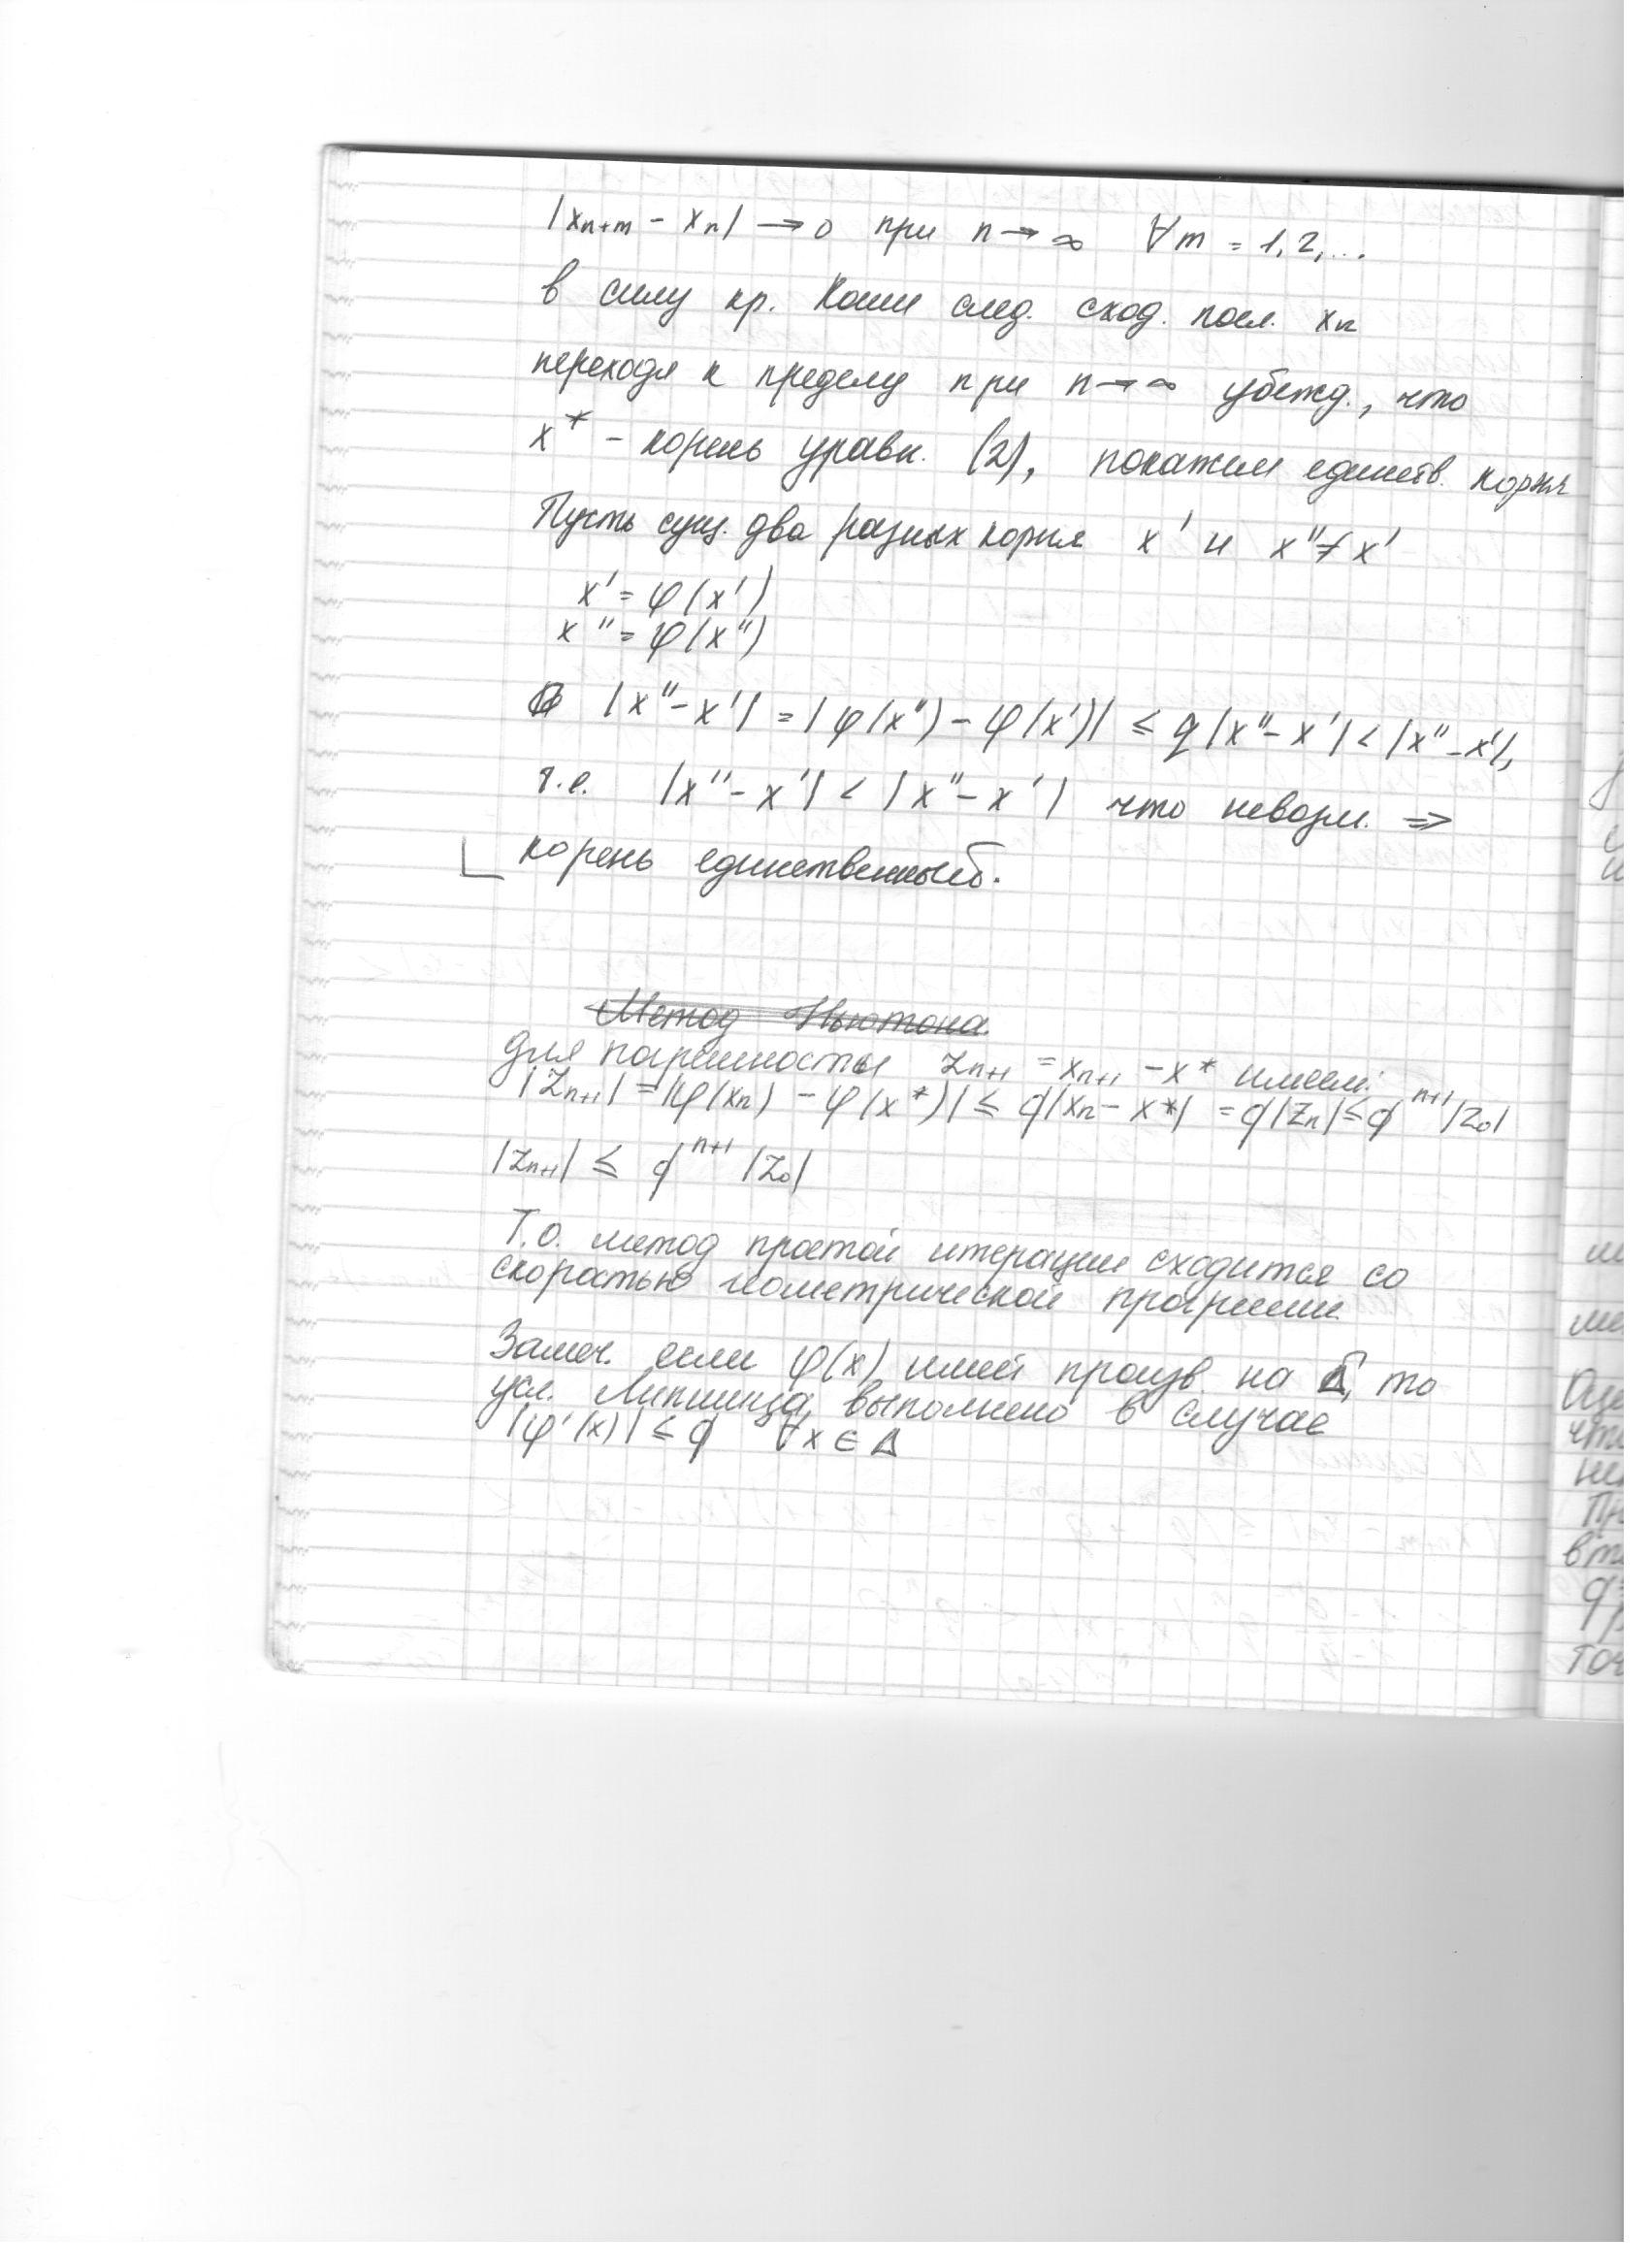 |xₙ₊ₘ - xₙ| → 0 при n → ∞ ∀m = 1, 2, ...
в силу кр. Коши след. сход. посл. xₙ
переходя к пределу при n → ∞ убежд., что
x* - корень уравн. (2), покажем единств. корня
Пусть сущ. два разных корня x' и x'' ≠ x'
x' = φ(x')
x'' = φ(x'')
|x'' - x'| = |φ(x'') - φ(x')| ≤ q|x'' - x'| < |x'' - x'|,
т.е. |x'' - x'| < |x'' - x'| что невозм. ⇒
корень единственный.
Метод Ньютона.
для погрешности zₙ₊₁ = xₙ₊₁ - x* имеем:
|zₙ₊₁| = |φ(xₙ) - φ(x*)| ≤ q|xₙ - x*| = q|zₙ| ≤ qⁿ⁺¹|z₀|
|zₙ₊₁| ≤ qⁿ⁺¹ |z₀|
Т.О. метод простой итерации сходится со
скоростью геометрической прогрессии.
Замеч. если φ(x) имеет произв. на Δ, то
усл. Липшица выполнено в случае
|φ'(x)| ≤ q ∀x ∈ Δ